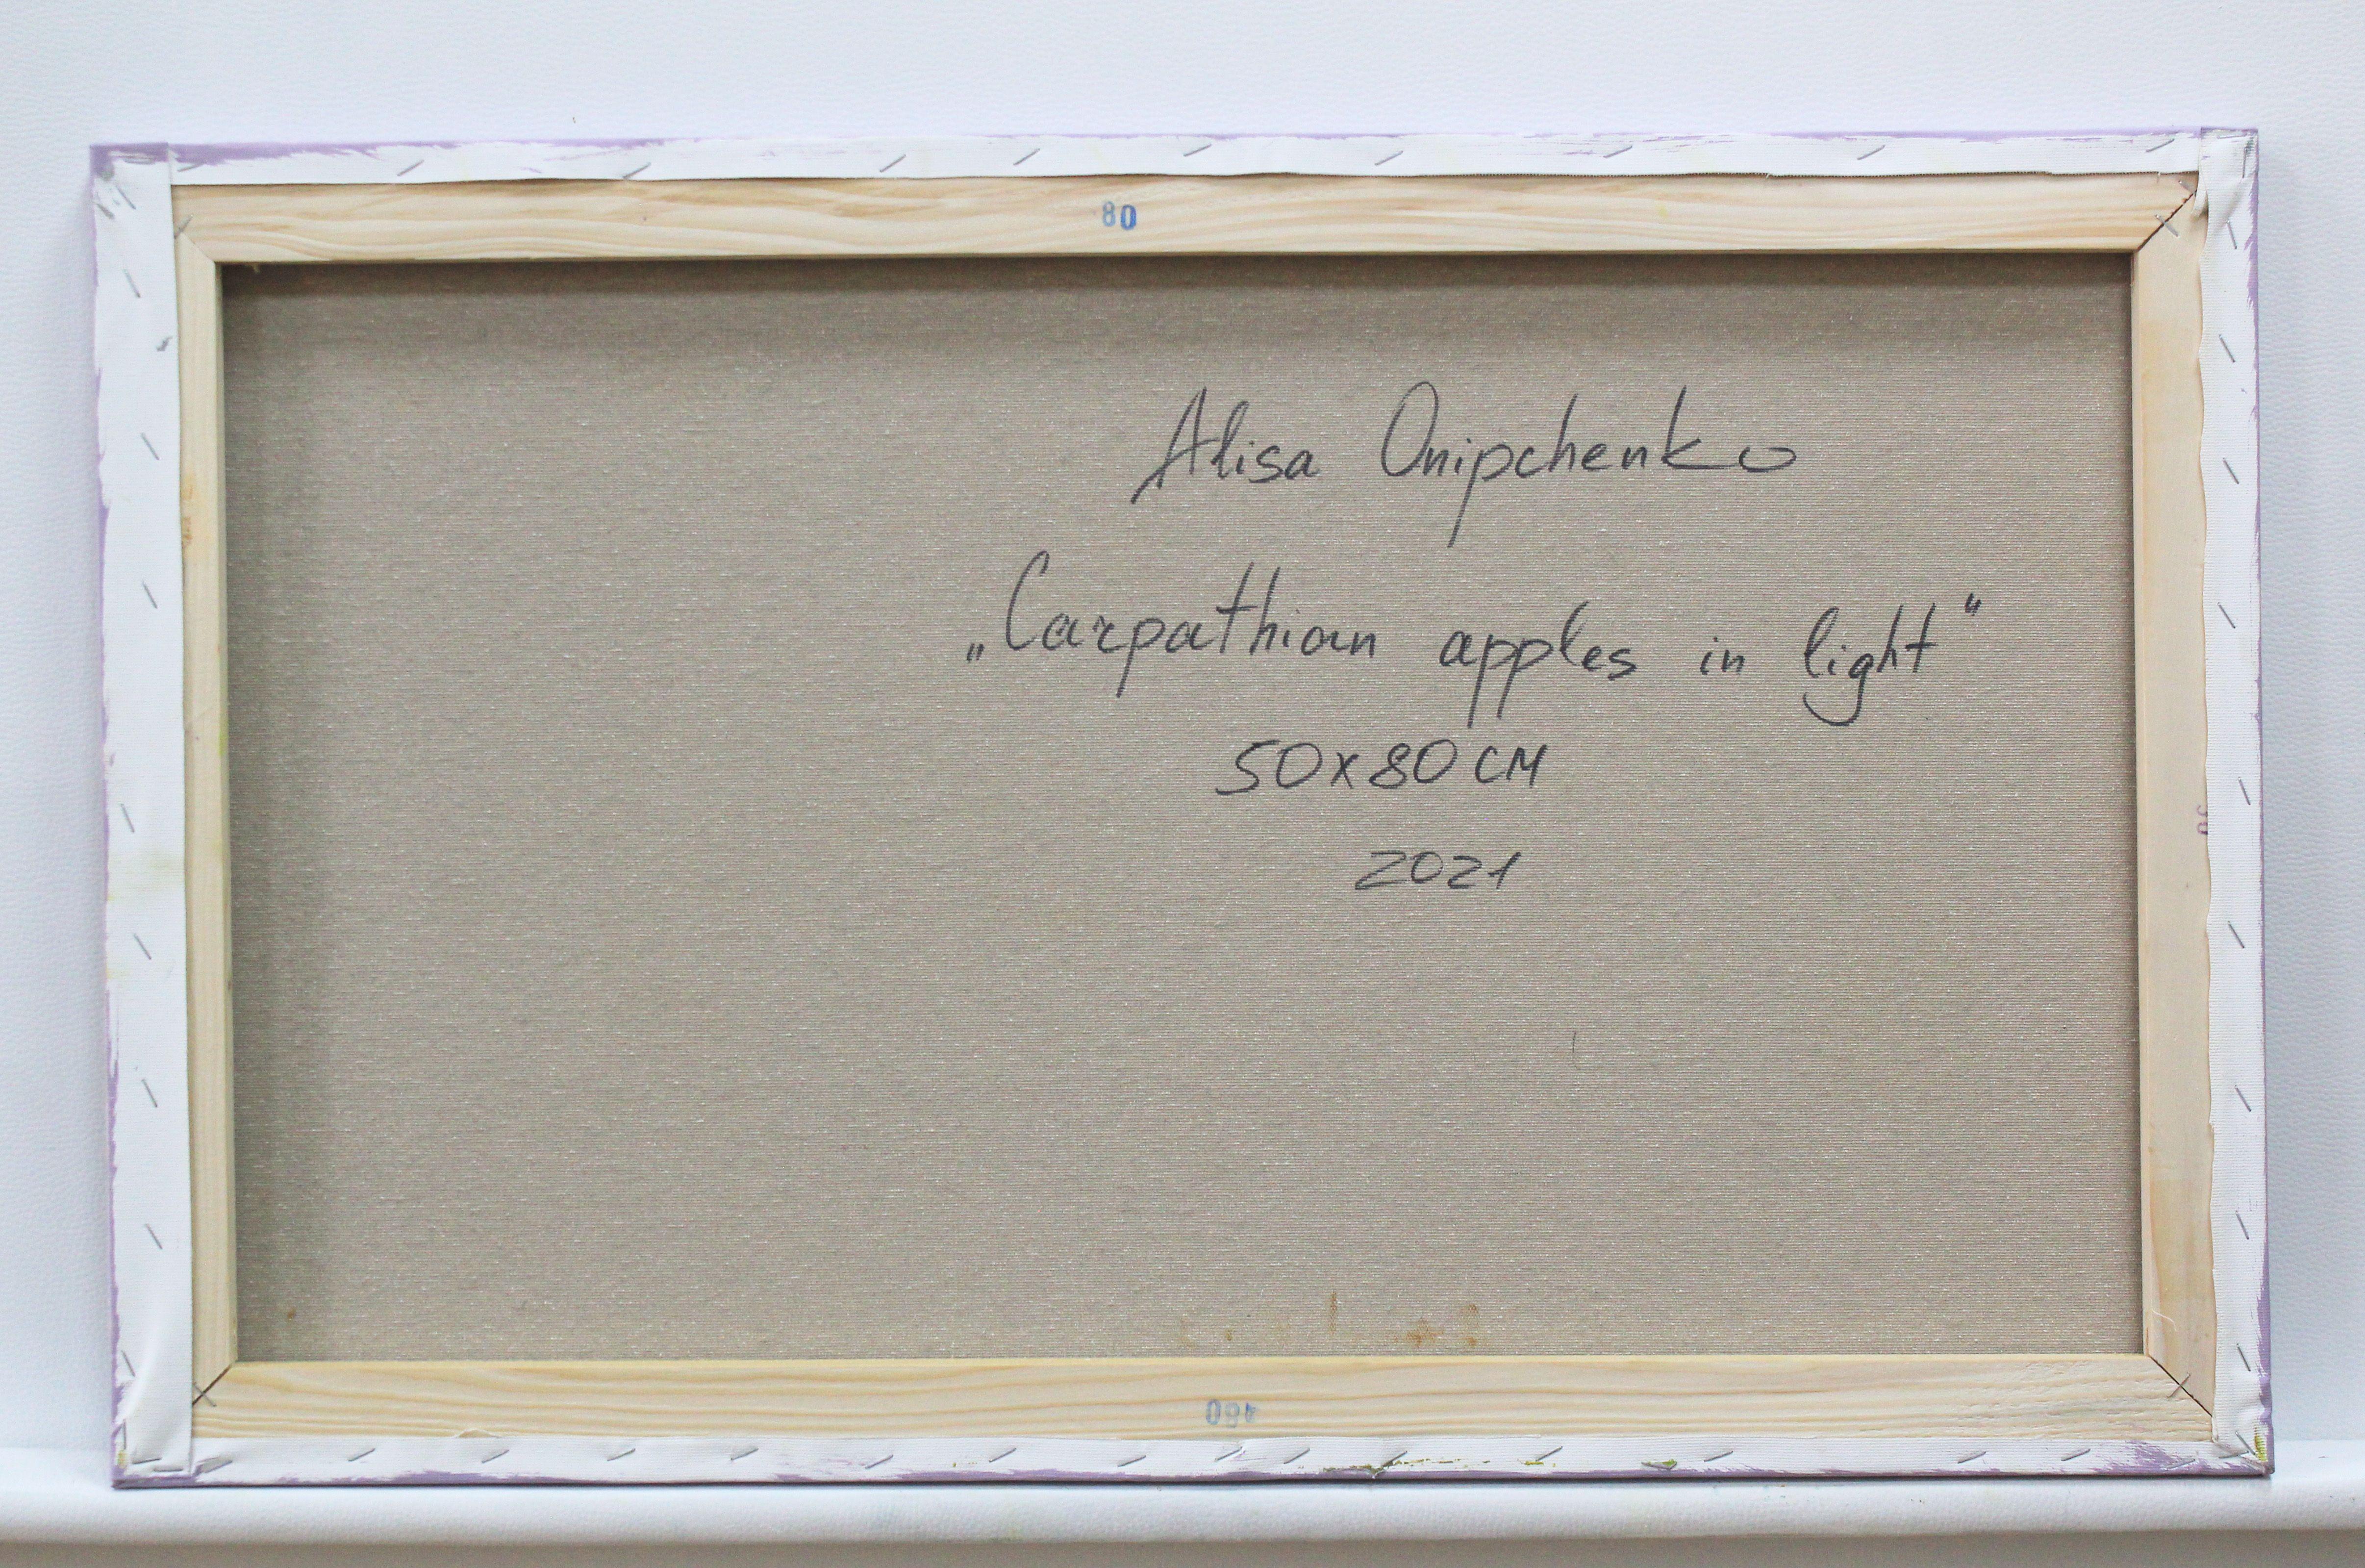 80
Alisa Onipchenko
„Carpathian apples in light“
50x80 см
2021